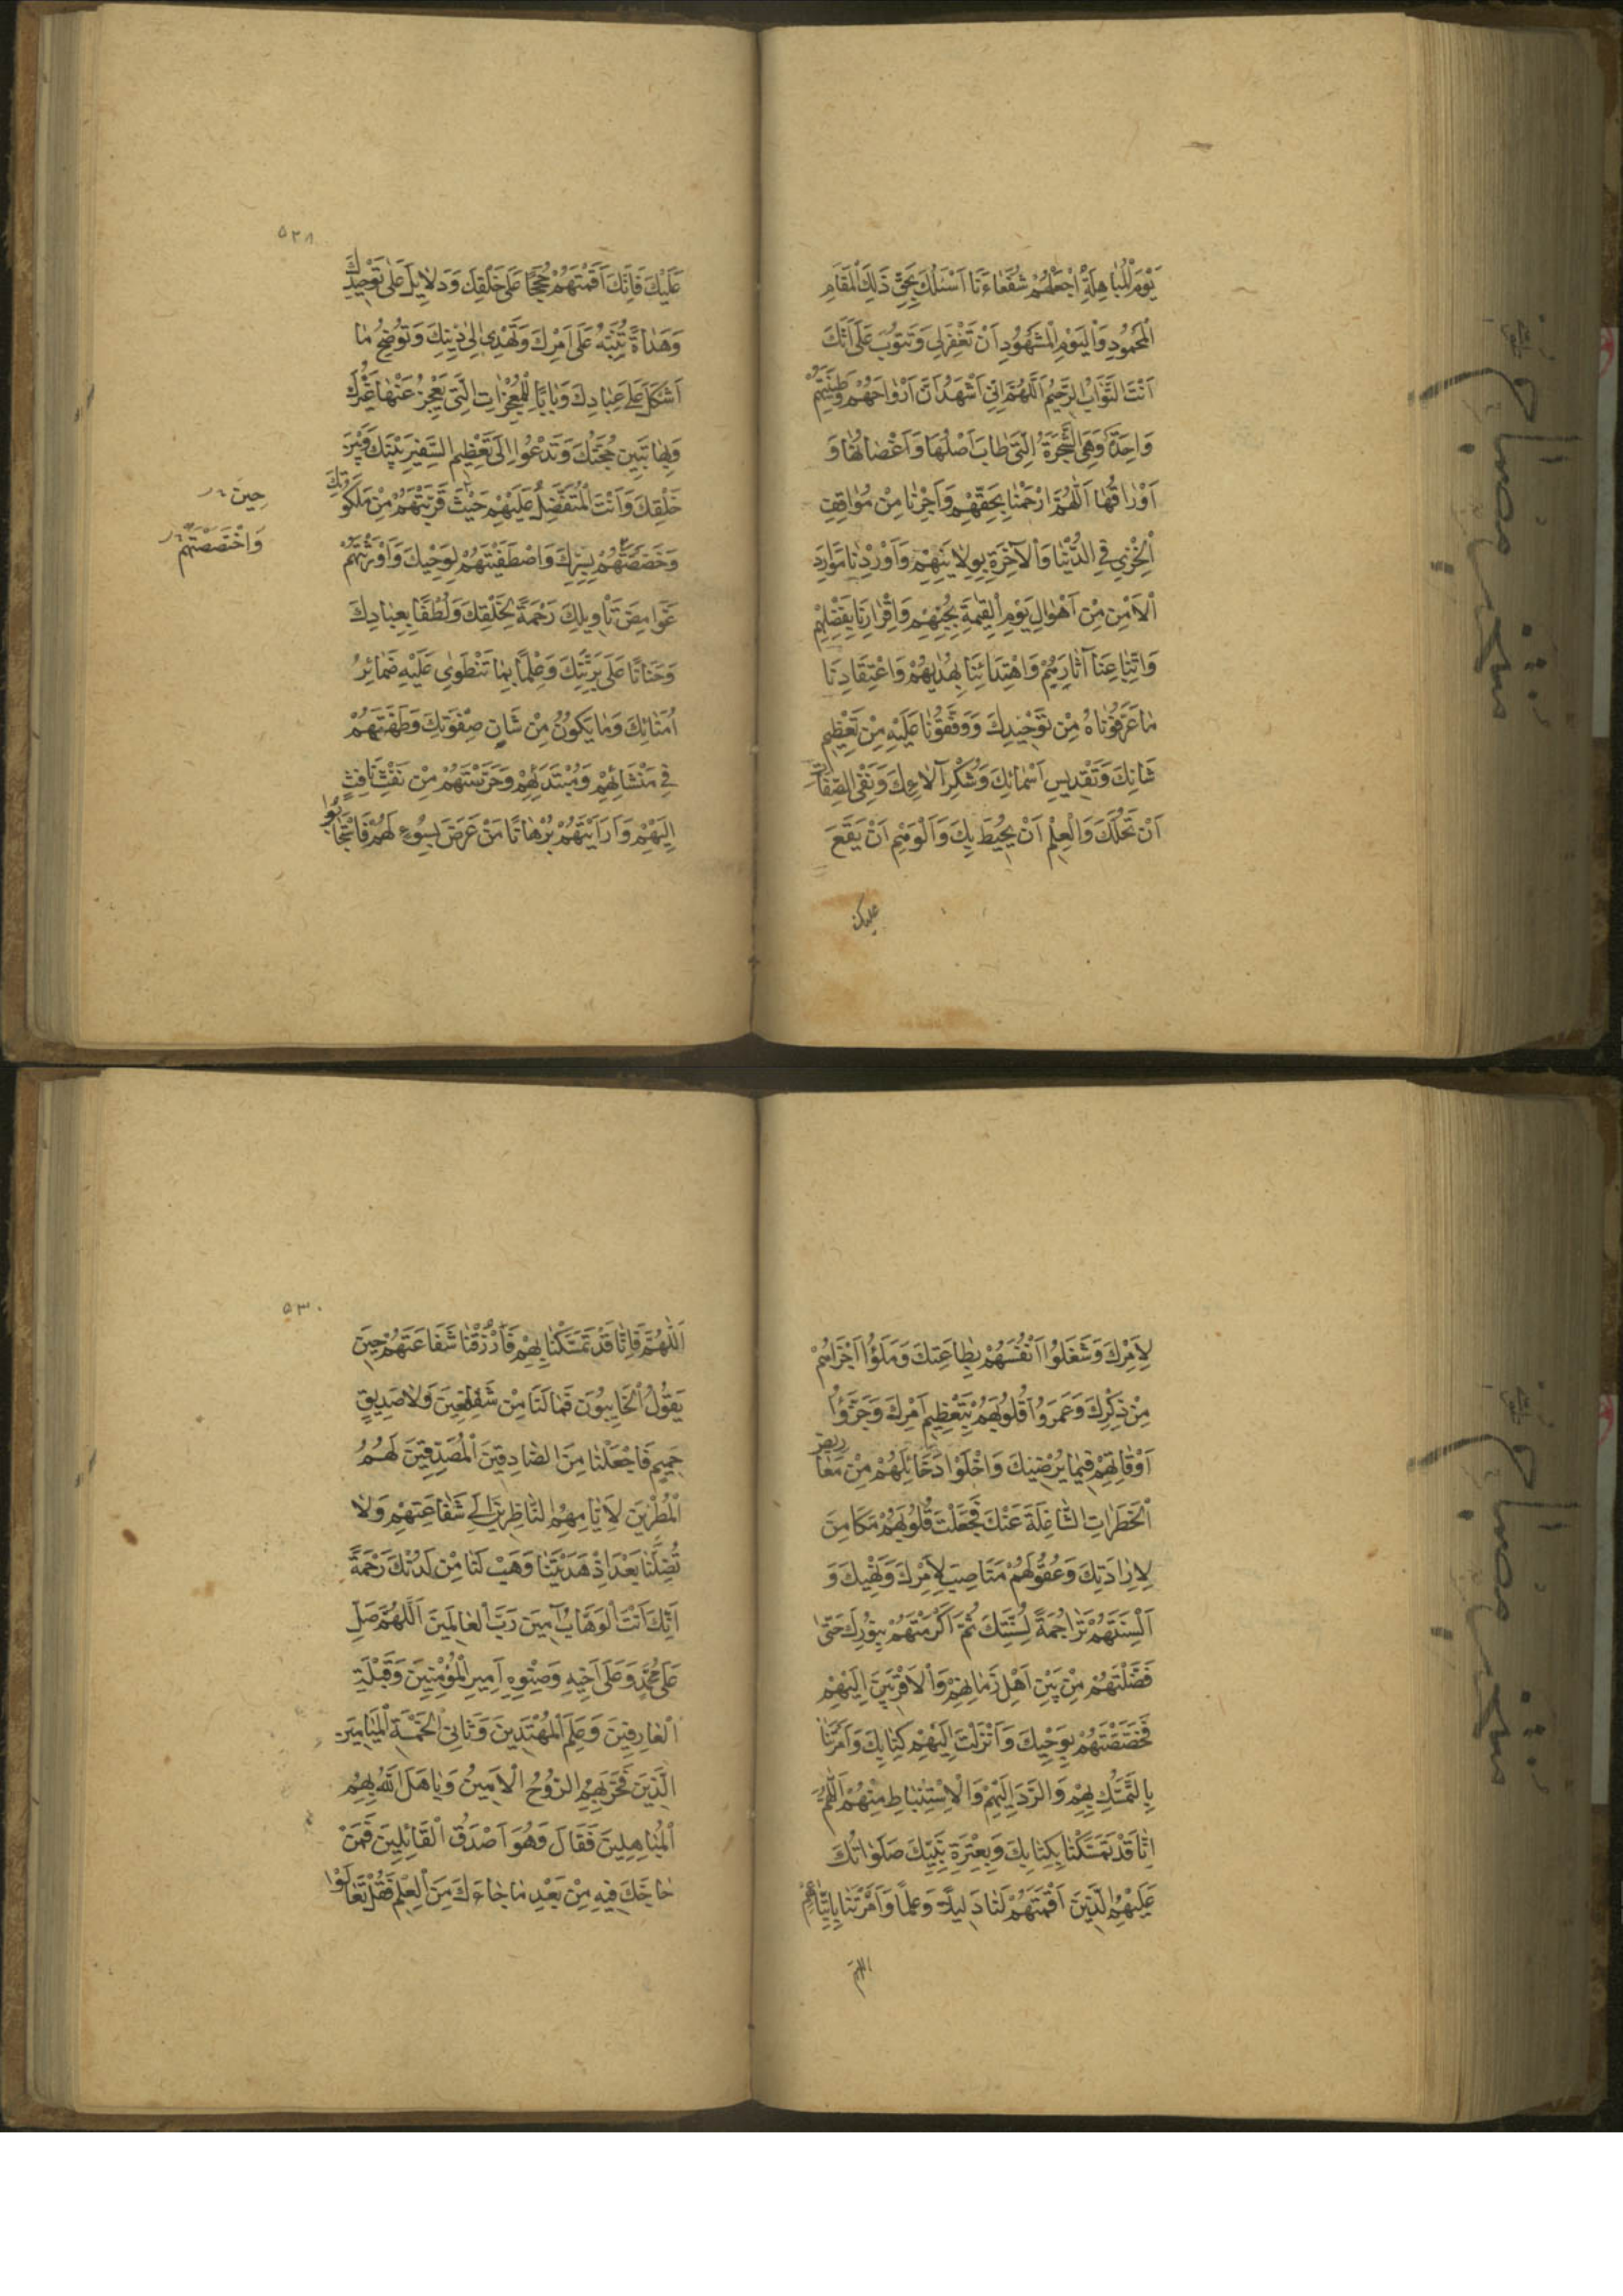 يَوْمَ الْمُبَاهِلَةِ اجْعَلْهُمْ شُفَعَاءَنَا اَسْئَلُكَ بِحَقِّ ذٰلِكَ الْمَقَامِ
الْمَحْمُودِ وَالْيَوْمِ الْمَشْهُودِ اَنْ تَغْفِرَ لِي وَتَتُوبَ عَلَيَّ اِنَّكَ
اَنْتَ التَّوَّابُ الرَّحِيمُ اَللّٰهُمَّ اِنِّي اَشْهَدُ اَنَّ اَرْوَاحَهُمْ وَطِينَتَهُمْ
وَاحِدَةٌ وَهِيَ الشَّجَرَةُ الَّتِي طَابَ اَصْلُهَا وَاَغْصَانُهَا وَ
اَوْرَاقُهَا اَللّٰهُمَّ ارْحَمْنَا بِحَقِّهِمْ وَاَجِرْنَا مِنْ مَوَاقِفِ
الْخِزْيِ فِي الدُّنْيَا وَالْآخِرَةِ بِوِلَايَتِهِمْ وَاَوْرِدْنَا مَوَارِدَ
الْاَمْنِ مِنْ اَهْوَالِ يَوْمِ الْقِيٰمَةِ بِحُبِّهِمْ وَاِقْرَارِنَا بِفَضْلِهِمْ
وَاتِّبَاعِنَا آثَارَهُمْ وَاهْتِدَائِنَا بِهُدٰيهُمْ وَاعْتِقَادِنَا
مَا عَرَّفُونَاهُ مِنْ تَوْحِيدِكَ وَوَقَّفُونَا عَلَيْهِ مِنْ تَعْظِيمِ
شَانِكَ وَتَقْدِيسِ اَسْمَائِكَ وَشُكْرِ آلَائِكَ وَنَفْيِ الصِّفَاتِ
اَنْ تَحُلَّكَ وَالْعِلْمِ اَنْ يُحِيطَ بِكَ وَالْوَهْمِ اَنْ يَقَعَ
عليك
٥٢٨
عَلَيْكَ فَاِنَّكَ اَقَمْتَهُمْ حُجَجًا عَلٰى خَلْقِكَ وَدَلَايِلَ عَلٰى تَوْحِيدِكَ
وَهُدَاةً تُنَبِّهُ عَلٰى اَمْرِكَ وَتَهْدِي اِلٰى دِينِكَ وَتُوضِحُ مَا
اَشْكَلَ عَلٰى عِبَادِكَ وَبَابًا لِلْمُعْجِزَاتِ الَّتِي يَعْجِزُ عَنْهَا غَيْرُكَ
وَبِهَا تَبِينُ حُجَّتُكَ وَتَدْعُوا اِلٰى تَعْظِيمِ السَّفِيرِ بَيْنَكَ وَبَيْنَ
خَلْقِكَ وَاَنْتَ الْمُتَفَضِّلُ عَلَيْهِمْ حَيْثُ قَرَّبْتَهُمْ مِنْ مَلَكُوتِكَ
حِينَ
وَخَصَصْتَهُمْ بِسِرِّكَ وَاصْطَفَيْتَهُمْ لِوَحْيِكَ وَاَوْرَثْتَهُمْ
وَاخْتَصَصْتَهُمْ
غَوَامِضَ تَأْوِيلِكَ رَحْمَةً بِخَلْقِكَ وَلُطْفًا بِعِبَادِكَ
وَحَنَانًا عَلٰى بَرِيَّتِكَ وَعِلْمًا بِمَا تَنْطَوِي عَلَيْهِ ضَمَائِرُ
اُمَنَائِكَ وَمَا يَكُونُ مِنْ شَانِ صِفْوَتِكَ وَطَهَّرْتَهُمْ
فِي مَنْشَائِهِمْ وَمُبْتَدَئِهِمْ وَحَرَسْتَهُمْ مِنْ نَفْثِ نَافِثٍ
اِلَيْهِمْ وَاَرَايْتَهُمْ بُرْهَانًا مَنْ عَرَضَ بِسُوءٍ لَهُمْ فَاسْتَجَابُوا
لِاَمْرِكَ وَشَغَلُوا اَنْفُسَهُمْ بِطَاعَتِكَ وَمَلَؤُا اَجْزَاءَهُمْ
مِنْ ذِكْرِكَ وَعَمَرُوا قُلُوبَهُمْ بِتَعْظِيمِ اَمْرِكَ وَجَزَّؤُا
اَوْقَاتَهُمْ فِيمَا يُرْضِيكَ وَاَخْلَوْا دَخَائِلَهُمْ مِنْ مَعَارِيضِ
الْخَطَرَاتِ الشَّاغِلَةِ عَنْكَ فَجَعَلْتَ قُلُوبَهُمْ مَكَامِنَ
لِاِرَادَتِكَ وَعُقُولَهُمْ مَنَاصِبَ لِاَمْرِكَ وَنَهْيِكَ وَ
اَلْسِنَتَهُمْ تَرَاجِمَةً لِسُنَّتِكَ ثُمَّ اَكْرَمْتَهُمْ بِنُورِكَ حَتّٰى
فَضَّلْتَهُمْ مِنْ بَيْنِ اَهْلِ زَمَانِهِمْ وَالْاَقْرَبِينَ اِلَيْهِمْ
فَخَصَصْتَهُمْ بِوَحْيِكَ وَاَنْزَلْتَ اِلَيْهِمْ كِتَابَكَ وَاَمَرْتَنَا
بِالتَّمَسُّكِ بِهِمْ وَالرَّدِّ اِلَيْهِمْ وَالْاِسْتِنْبَاطِ مِنْهُمْ اَللّٰهُمَّ
اِنَّا قَدْ تَمَسَّكْنَا بِكِتَابِكَ وَبِعِتْرَةِ نَبِيِّكَ صَلَوَاتُكَ
عَلَيْهِمُ الَّذِينَ اَقَمْتَهُمْ لَنَا دَلِيلًا وَعَلَمًا وَاَمَرْتَنَا بِاتِّبَاعِهِمْ
اللهم
٥٣٠
اَللّٰهُمَّ فَاِنَّا قَدْ تَمَسَّكْنَا بِهِمْ فَارْزُقْنَا شَفَاعَتَهُمْ حِينَ
يَقُولُ الْخَايِبُونَ فَمَا لَنَا مِنْ شَافِعِينَ وَلَا صَدِيقٍ
حَمِيمٍ فَاجْعَلْنَا مِنَ الصَّادِقِينَ الْمُصَدِّقِينَ لَهُمُ
الْمُنْتَظِرِينَ لِاَيَّامِهِمُ النَّاظِرِينَ اِلٰى شَفَاعَتِهِمْ وَلَا
تُضِلَّنَا بَعْدَ اِذْ هَدَيْتَنَا وَهَبْ لَنَا مِنْ لَدُنْكَ رَحْمَةً
اِنَّكَ اَنْتَ الْوَهَّابُ آمِينَ رَبَّ الْعَالَمِينَ اَللّٰهُمَّ صَلِّ
عَلٰى مُحَمَّدٍ وَعَلٰى اَخِيهِ وَصِنْوِهِ اَمِيرِ الْمُؤْمِنِينَ وَقِبْلَةِ
الْعَارِفِينَ وَعَلَمِ الْمُهْتَدِينَ وَثَانِي الْخَمْسَةِ الْمَيَامِينِ
الَّذِينَ فَخَرَ بِهِمُ الرُّوحُ الْاَمِينُ وَبَاهَلَ اللّٰهُ بِهِمُ
الْمُبَاهِلِينَ فَقَالَ وَهُوَ اَصْدَقُ الْقَائِلِينَ فَمَنْ
حَاجَّكَ فِيهِ مِنْ بَعْدِ مَا جَاءَكَ مِنَ الْعِلْمِ فَقُلْ تَعَالَوْا